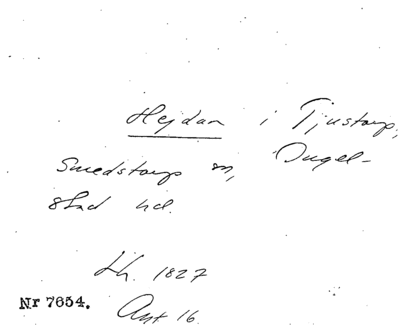 Hejdan i Tjustorp,
Smedstorp sn, Ingel-
stad hd.
Lh. 1827
Nr 7654. Ant 16.